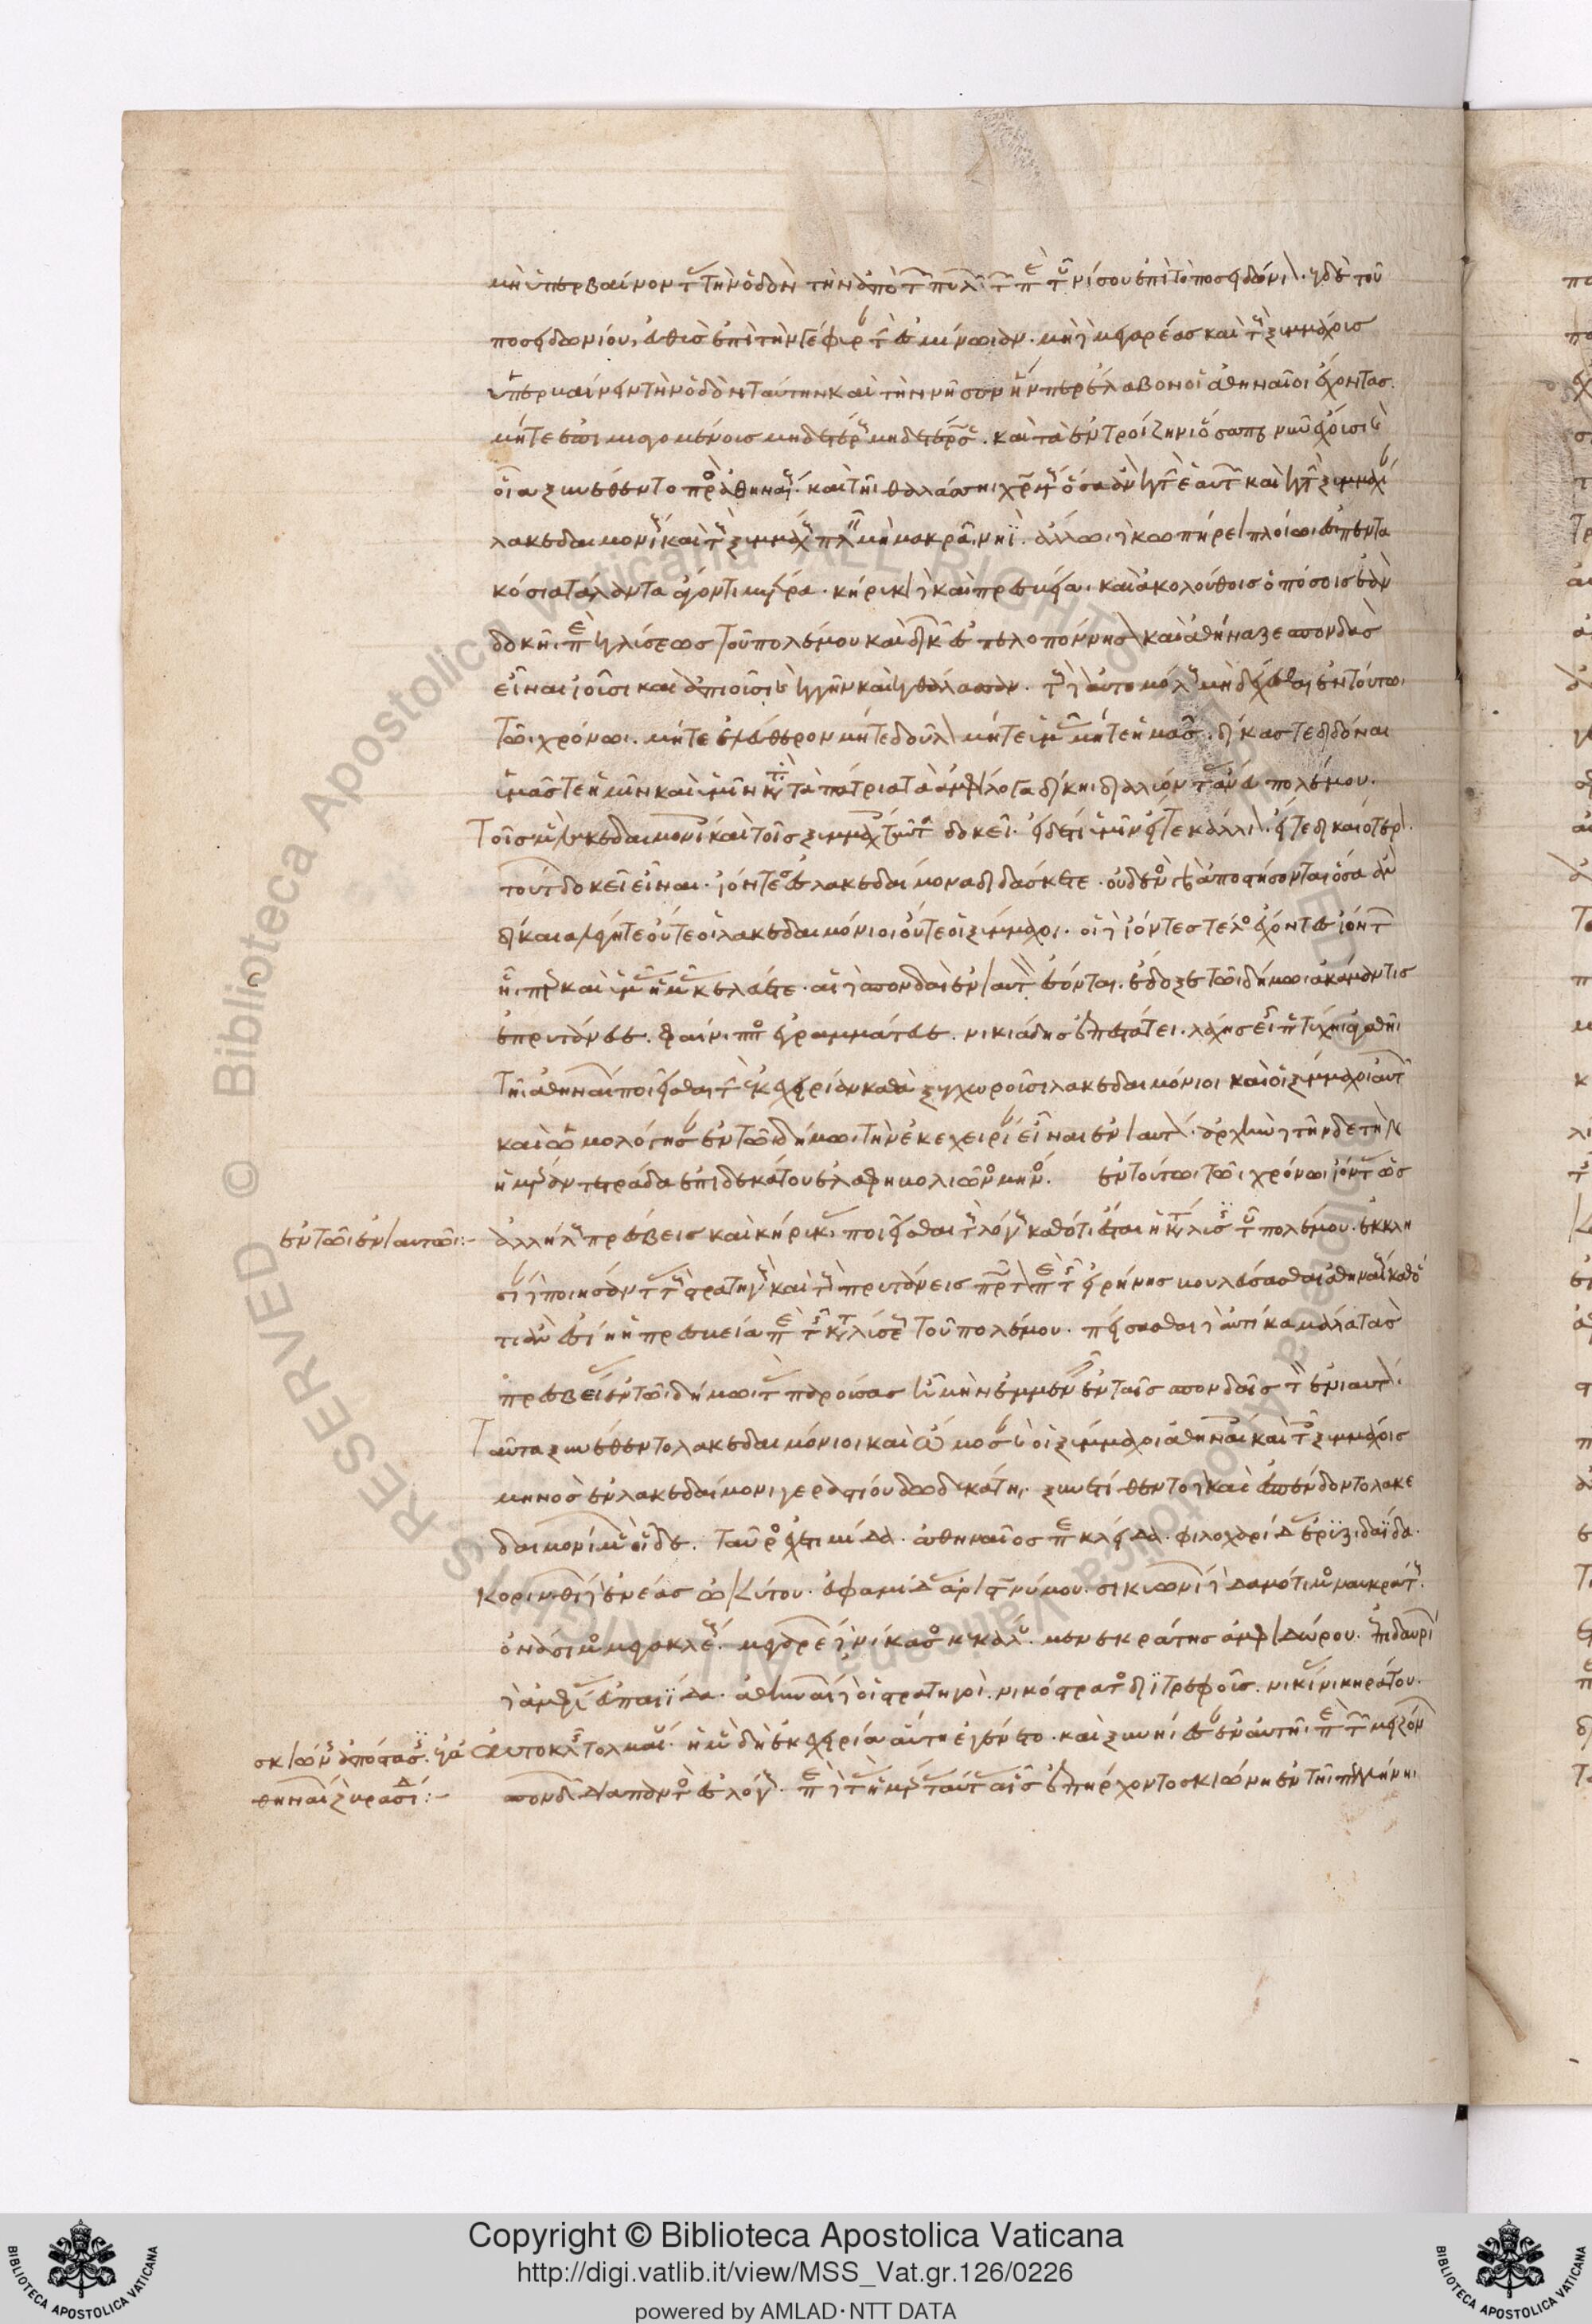 μὴ ὑπερβαίνοντας τὴν ὁδὸν τὴν ἀπὸ τῶν πυλῶν τῶν παρὰ τοῦ νίσου ἐπὶ τὸ ποσειδώνιον. ἀπὸ δὲ τοῦ
ποσειδωνίου, εὐθὺς ἐπὶ τὴν γέφυραν τὴν ἐς μινώιαν. μηδὲ μεγαρέας καὶ τοὺς ξυμμάχους
ὑπερβαίνειν τὴν ὁδὸν ταύτην καὶ τὴν νῆσον ἥνπερ ἔλαβον οἱ ἀθηναῖοι ἔχοντας.
μήτε ἐπιμισγομένους μηδετέρους μηδετέρωσε. καὶ τὰ ἐν τροιζῆνι ὅσαπερ νῦν ἔχουσι καὶ
οἷα ξυνέθεντο πρὸς ἀθηναίους. καὶ τῆι θαλάσσηι χρωμένους ὅσα ἂν κατὰ τὴν ἑαυτῶν καὶ κατὰ τὴν ξυμμαχίαν
λακεδαιμονίους καὶ τοὺς ξυμμάχους πλεῖν μὴ μακρᾶι νηὶ. ἄλλωι δὲ κωπήρει πλοίωι ἐς πεντα
κόσια τάλαντα ἄγοντι μέτρα. κήρυκι δὲ καὶ πρεσβείαι καὶ ἀκολούθοις ὁπόσοις ἂν
δοκῆι περὶ καταλύσεως τοῦ πολέμου καὶ δικῶν ἐς πελοπόννησον καὶ ἀθήναζε σπονδὰς
εἶναι ἰοῦσι καὶ ἀπιοῦσι καὶ κατὰ γῆν καὶ κατὰ θάλασσαν. τοὺς δὲ αὐτομόλους μὴ δέχεσθαι ἐν τούτωι
τῶι χρόνωι. μήτε ἐλεύθερον μήτε δοῦλον μήτε ὑμᾶς μήτε ἡμᾶς. δίκας τε διδόναι
ὑμᾶς τε ἡμῖν καὶ ἡμᾶς ὑμῖν κατὰ τὰ πάτρια τὰ ἀμφίλογα δίκηι διαλύοντας ἄνευ πολέμου.
Τοῖς μὲν λακεδαιμονίοις καὶ τοῖς ξυμμάχοις ταῦτα δοκεῖ. εἰ δέ τι ὑμῖν εἴτε κάλλιον. εἴτε δικαιότερον.
τούτων δοκεῖ εἶναι. ἰόντες ἐς λακεδαίμονα διδάσκετε. οὐδενὸς γὰρ ἀποστήσονται ὅσα ἂν
δίκαια λέγητε οὔτε οἱ λακεδαιμόνιοι οὔτε οἱ ξύμμαχοι. οἱ δὲ ἰόντες τέλος ἔχοντες ἰόντων
ἧιπερ καὶ ὑμεῖς ἡμᾶς κελεύετε. αἱ δὲ σπονδαὶ ἐνιαυτὸν ἔσονται. ἔδοξε τῶι δήμωι ἀκάμαντις
ἐπρυτάνευε. φαίνιππος ἐγραμμάτευε. νικιάδης ἐπεστάτει. λάχης εἶπε τύχηι ἀγαθῆι
τῆι ἀθηναίων ποιεῖσθαι τὴν ἐκεχειρίαν καθὰ ξυγχωροῦσι λακεδαιμόνιοι καὶ οἱ ξύμμαχοι αὐτῶν
καὶ ὡμολόγησαν ἐν τῶι δήμωι. τὴν ἐκεχειρίαν εἶναι ἐνιαυτὸν. ἄρχειν δὲ τήνδε τὴν
ἡμέραν τετράδα ἐπὶ δεκάτου ἐλαφηβολιῶνος μηνός. ἐν τούτωι τῶι χρόνωι ἰόντας ὡς
ἐν τῶι ἐνιαυτῶι:-
ἀλλήλους πρέσβεις καὶ κήρυκας ποιεῖσθαι τοὺς λόγους καθότι ἔσται ἡ κατάλυσις τοῦ πολέμου. ἐκκλη
σίαν δὲ ποιήσαντας τοὺς στρατηγοὺς καὶ τοὺς πρυτάνεις πρῶτον περὶ τῆς εἰρήνης βουλεύσασθαι ἀθηναίους καθό
τι ἂν ἐσίηι ἡ πρεσβεία περὶ τῆς καταλύσεως τοῦ πολέμου. σπείσασθαι δὲ αὐτίκα μάλα τὰς
πρεσβείας ἐν τῶι δήμωι τὰς παρούσας ἦ μὴν ἐμμενεῖν ἐν ταῖς σπονδαῖς τὸν ἐνιαυτόν.
Ταῦτα ξυνέθεντο λακεδαιμόνιοι καὶ ὤμοσαν καὶ οἱ ξύμμαχοι ἀθηναίοις καὶ τοῖς ξυμμάχοις
μηνὸς ἐν λακεδαίμονι γεραστίου δωδεκάτηι. ξυνετίθεντο δὲ καὶ ἐσπένδοντο λακε
δαιμονίων μὲν οἵδε. ταῦρος ἐχετιμίδα. ἀθηναῖος περικλείδα. φιλοχαρίδας ἐρυξιδαΐδα.
Κορινθίων δὲ αἰνέας ὠκύτου. εὐφαμίδας ἀριστωνύμου. σικυωνίων δὲ δαμότιμος ναυκράτους.
ὀνάσιμος μεγακλέους. μεγαρέων δὲ νίκασος κεκάλου. μενεκράτης ἀμφιδώρου. ἐπιδαυρίων
δὲ ἀμφίας εὐπαιΐδα. ἀθηναίων δὲ οἱ στρατηγοὶ. νικόστρατος διϊτρεφοῦς. νικίας νικηράτου.
Αὐτοκλῆς τολμαίου. ἡ μὲν δὴ ἐκεχειρία αὕτη ἐγένετο. καὶ ξυνήιεσαν ἐν αὐτῆι περὶ τῶν μειζόνων
σκιώνης ἀπόστασις. ἀπὸ ἀ
θηναίων πρὸς βρασίδαν:-
σπονδῶν διὰ παντὸς ἐς λόγους. περὶ δὲ τὰς ἡμέρας ταύτας αἷς ἐπήρχοντο σκιώνη ἐν τῆι παλλήνηι
Copyright © Biblioteca Apostolica Vaticana
http://digi.vatlib.it/view/MSS_Vat.gr.126/0226
powered by AMLAD·NTT DATA